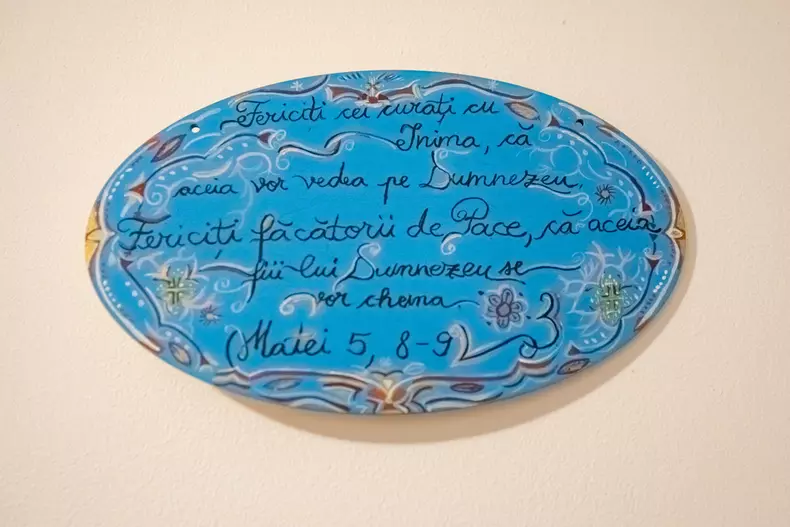 Fericiti cei curați cu
Inima, că
aceia vor vedea pe Dumnezeu.
Fericiți făcătorii de Pace, că aceia
fiii lui Dumnezeu se
vor chema.
(Matei 5, 8-9)